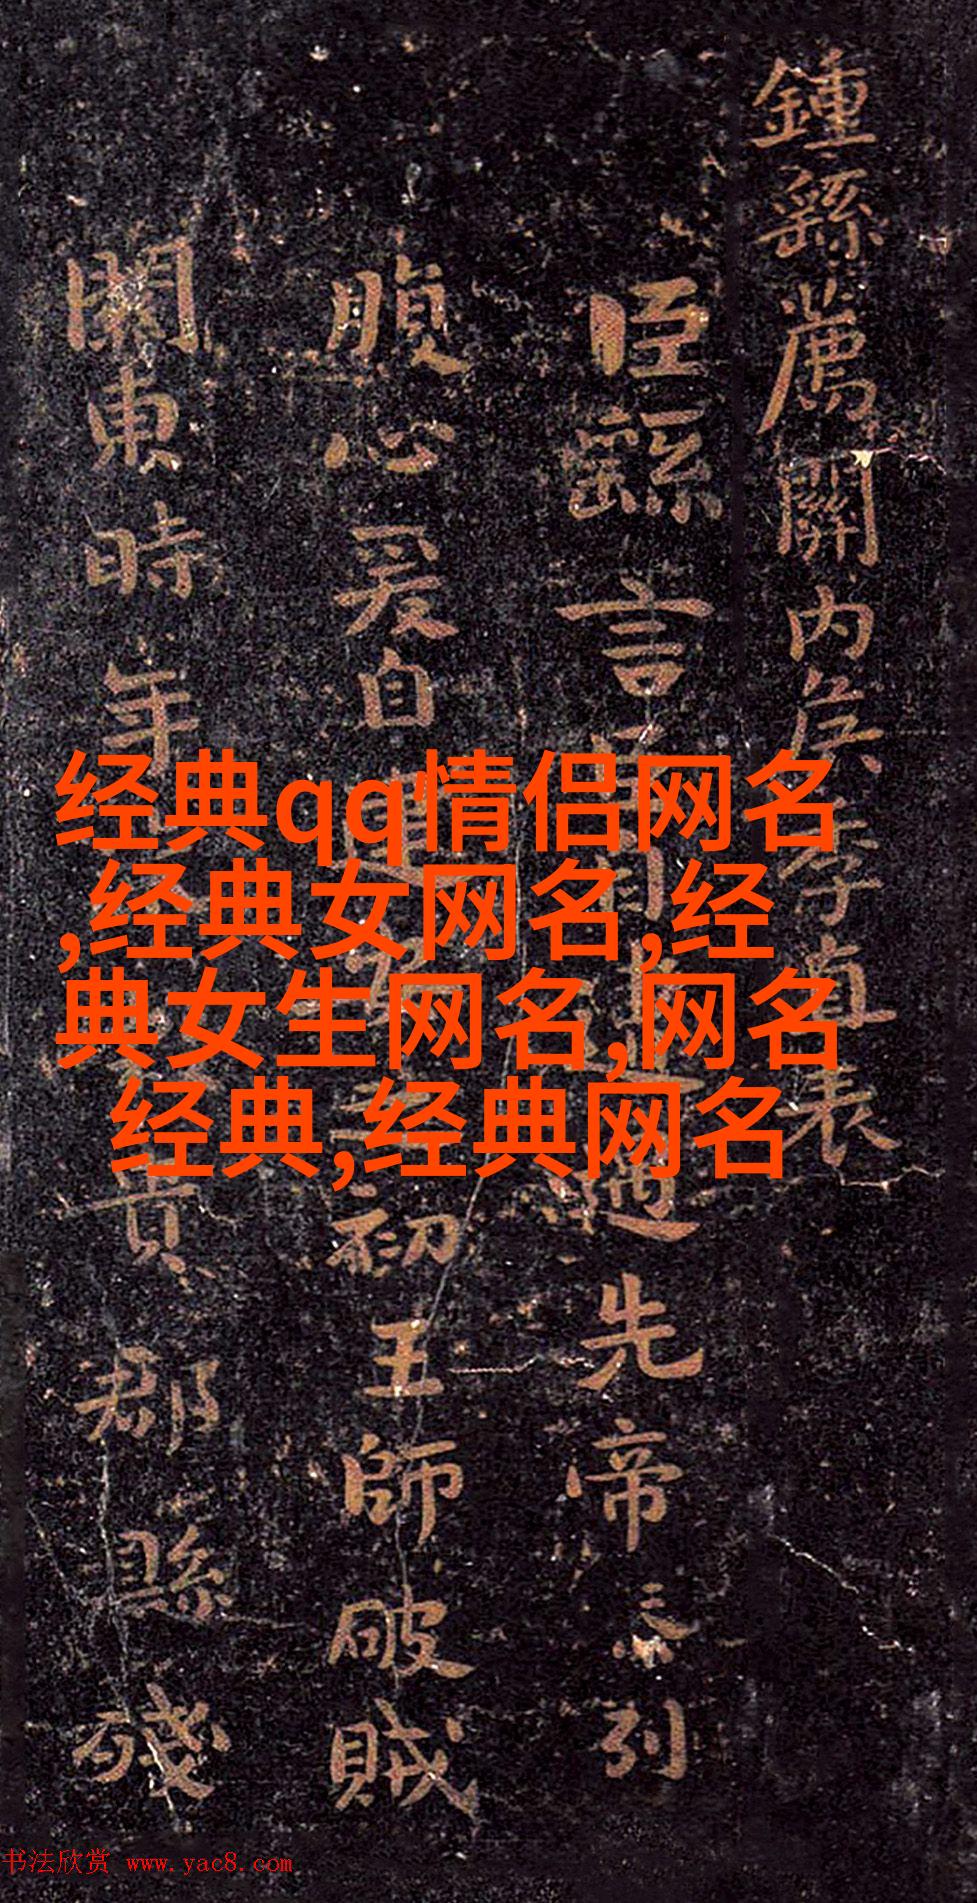 经典qq情侣网名
,经典女网名,经
典女生网名,网名
经典,经典网名
鍾繇薦關内侯季直表
臣繇言臣自遭遇先帝忝列
腹心爰自建初王師破賊
關東時年貴郡縣殘
书法欣赏 www.yac8.com